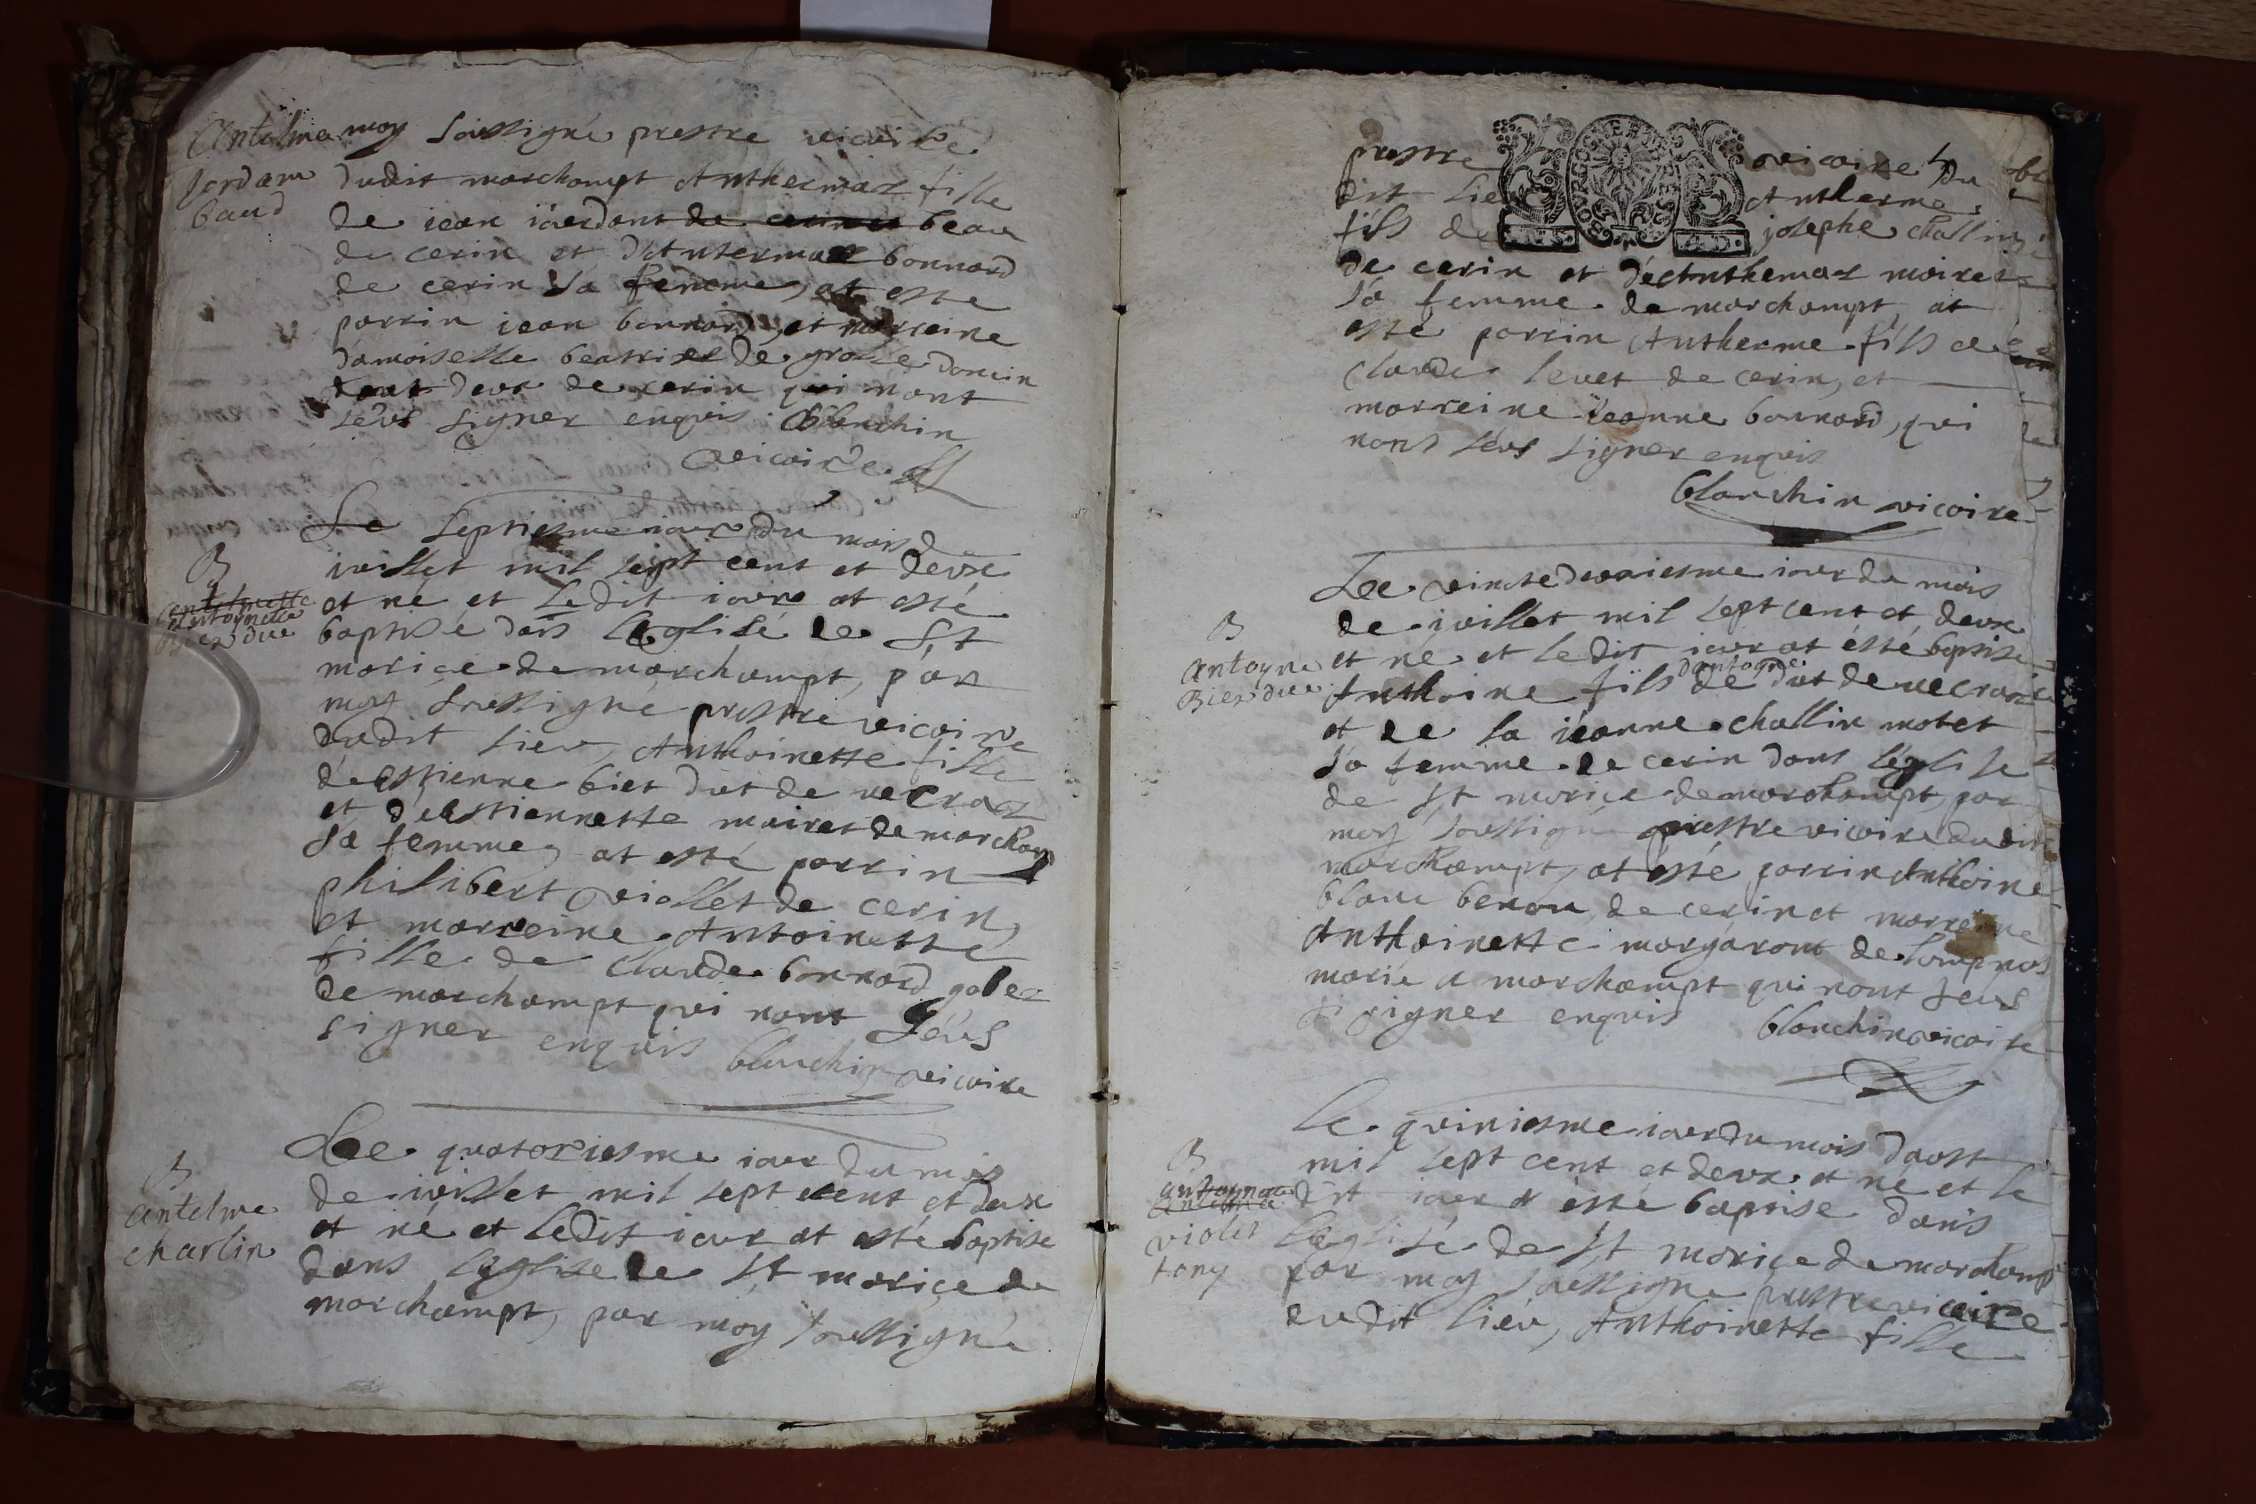 Antelma
Jordam
baud
moy soussigné prestre vicaire
dudit marchampt Anthermaz fille
de jean iourdant de cerin beau
de cerin et d'Antermaz bonnard
de cerin sa femme, at esté
parrin jean bonnard, et marreine
damoiselle beatrix de grolée
tout deux de cerin qui n'ont
seus signer enquis Blanchin
vicaire
B
antoynette
Bien due
Le septiesme iour du mois de
iuillet mil sept cent et deux
et né et ledit iour at esté
baptisé dans l'eglise de St
morice de marchampt, par
moy soussigné prestre vicaire
dudit lieu, Anthoinette fille
d'estienne biet dit de vecraz
et d'estiennette maires de marcham
sa femme, at esté parrin
philibert viollet de cerin,
et marreine Antoinette
fille de claude bonnard gabet
de marchampt qui nont seus
signer enquis blanchin vicaire
B
antelme
charlin
Le quatorziesme iour du mois
de iuillet mil sept cent et deux
et né et ledit iour at esté baptise
dans l'eglise de St morice de
marchampt, par moy soussigné
prestre vicaire du
dit lieu Antherme
fils de josephe challin
de cerin et d'Anthemaz maires
sa femme de marchampt, at
esté parrin Antherme fils de
claude levet de cerin, et
marreine ieanne bonnard, qui
nont seus signer enquis
blanchin vicaire
B
antoyne
Bien due
Le vinctedeuxiesme iour du mois
de iuillet mil sept cent et deux
et né et ledit iour at ésté baptise
Anthoine fils d'antoyne dit de vecraz
et de la ieanne challin motet
sa femme de cerin dans l'église
de St morice de marchampt, par
moy soussigné prestre vicaire dudit
marchampt, at esté parrin Anthoine
blanc benon de cerin et marreine
Anthoinette margaront de lompnas
marié a marchampt qui nont seus
signer enquis blanchin vicaire
B
violet
tony
Le quiniesme iour du mois d'aost
mil sept cent et deux et né et le
dit iour at ésté baptise dans
l'eglise de St morice de marchamp
par moy soussigné prestre vicaire
dudit lieu, Anthoinette fille